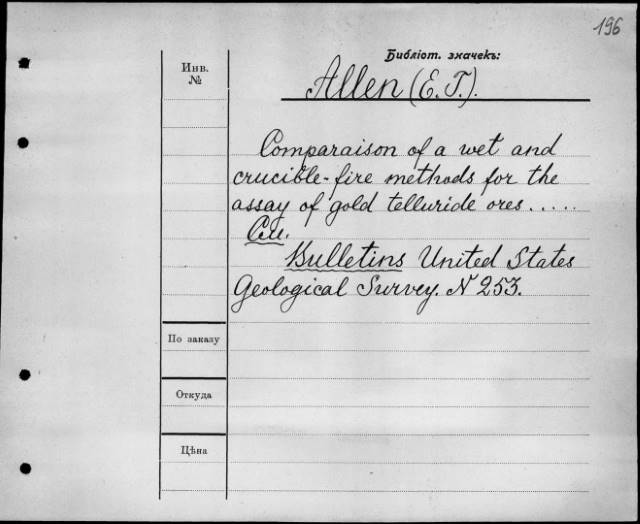 196
Библіот. значекъ:
Инв.
№
Allen (E. T.).
Comparaison of a wet and
crucible-fire methods for the
assay of gold telluride ores.....
См.
Bulletins United States
Geological Survey. N 253.
По заказу
Откуда
Цѣна